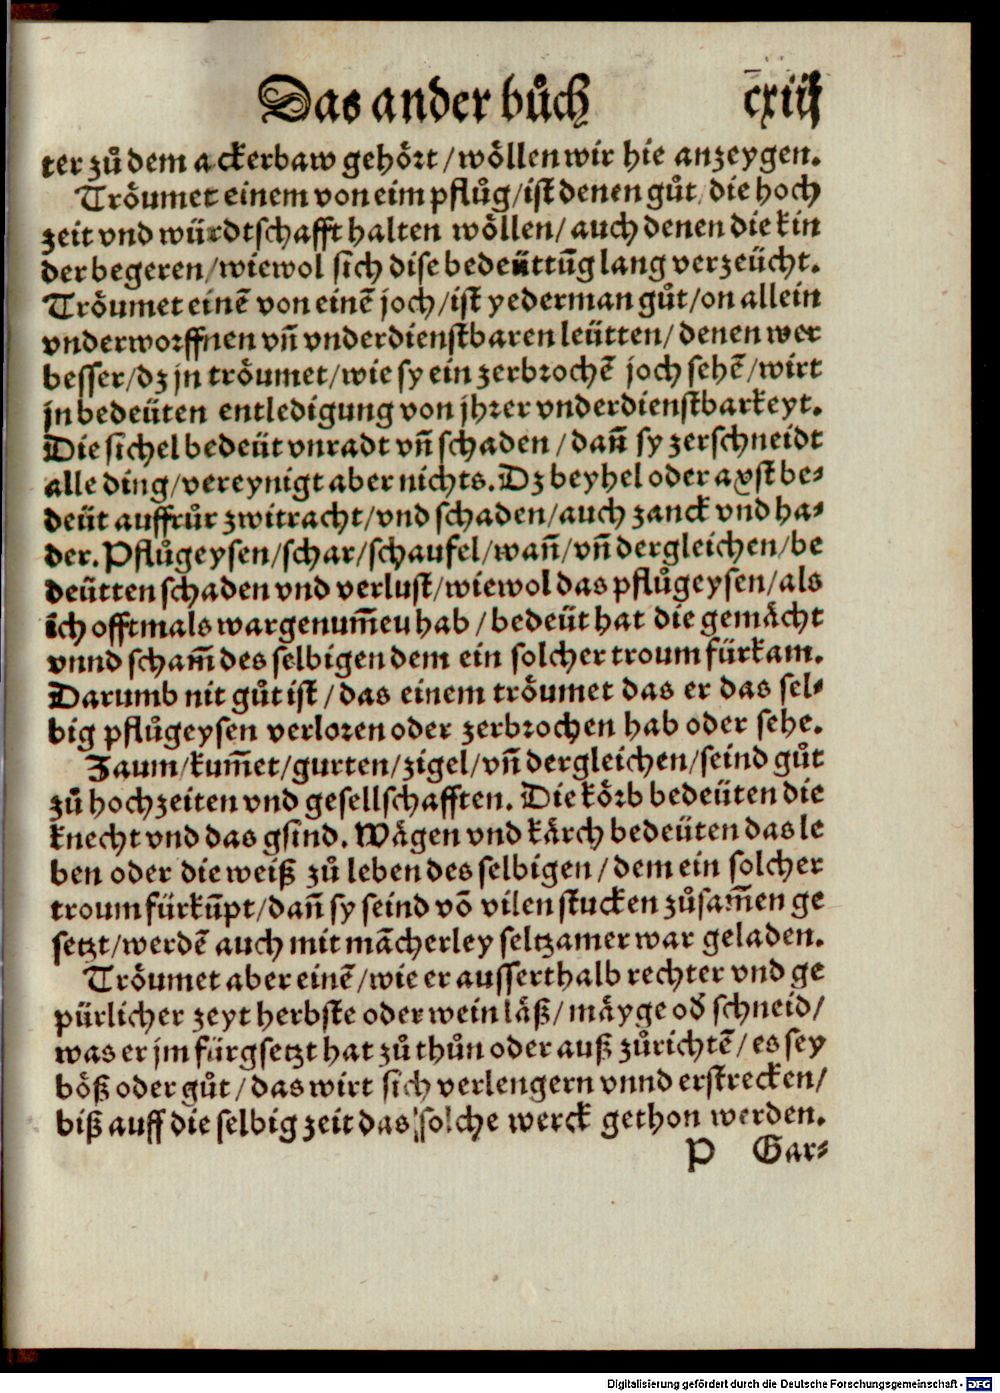 Das ander bůch cxiij
ter zů dem ackerbaw gehört/wöllen wir hie anzeygen.
Tröumet einem von eim pflůg/ist denen gůt/die hoch
zeit vnd würdtschafft halten wöllen/auch denen die kin
der begeren/wiewol sich dise bedeüttũg lang verzeücht.
Tröumet einẽ von einẽ joch/ist yederman gůt/on allein
vnderworffnen vñ vnderdienstbaren leütten/denen wer
besser/dz jn tröumet/wie sy ein zerbrochẽ joch sehẽ/wirt
jn bedeüten entledigung von jhrer vnderdienstbarkeyt.
Die sichel bedeüt vnradt vñ schaden/dañ sy zerschneidt
alle ding/vereynigt aber nichts. Dz beyhel oder axst be⸗
deüt auffrůr zwitracht/vnd schaden/auch zanck vnd ha⸗
der. Pflůgeysen/schar/schaufel/wañ/vñ dergleichen/be
deütten schaden vnd verlust/wiewol das pflůgeysen/als
ich offtmals wargenum̃en hab/bedeüt hat die gemächt
vnnd scham̃ des selbigen dem ein solcher troum fürkam.
Darumb nit gůt ist/das einem tröumet das er das sel⸗
big pflůgeysen verloren oder zerbrochen hab oder sehe.
Zaum/kum̃et/gurten/zigel/vñ dergleichen/seind gůt
zů hochzeiten vnd gesellschafften. Die körb bedeüten die
knecht vnd das gsind. Wägen vnd kärch bedeüten das le
ben oder die weiß zů leben des selbigen/dem ein solcher
troum fürkũpt/dañ sy seind võ vilen stucken zůsam̃en ge
setzt/werdẽ auch mit mãcherley seltzamer war geladen.
Tröumet aber einẽ/wie er ausserthalb rechter vnd ge
pürlicher zeyt herbste oder wein läß/mäyge od̕ schneid/
was er jm fürgsetzt hat zů thůn oder auß zůrichtẽ/es sey
böß oder gůt/das wirt sich verlengern vnnd erstrecken/
biß auff die selbig zeit das solche werck gethon werden.
P Gar⸗
Digitalisierung gefördert durch die Deutsche Forschungsgemeinschaft - DFG